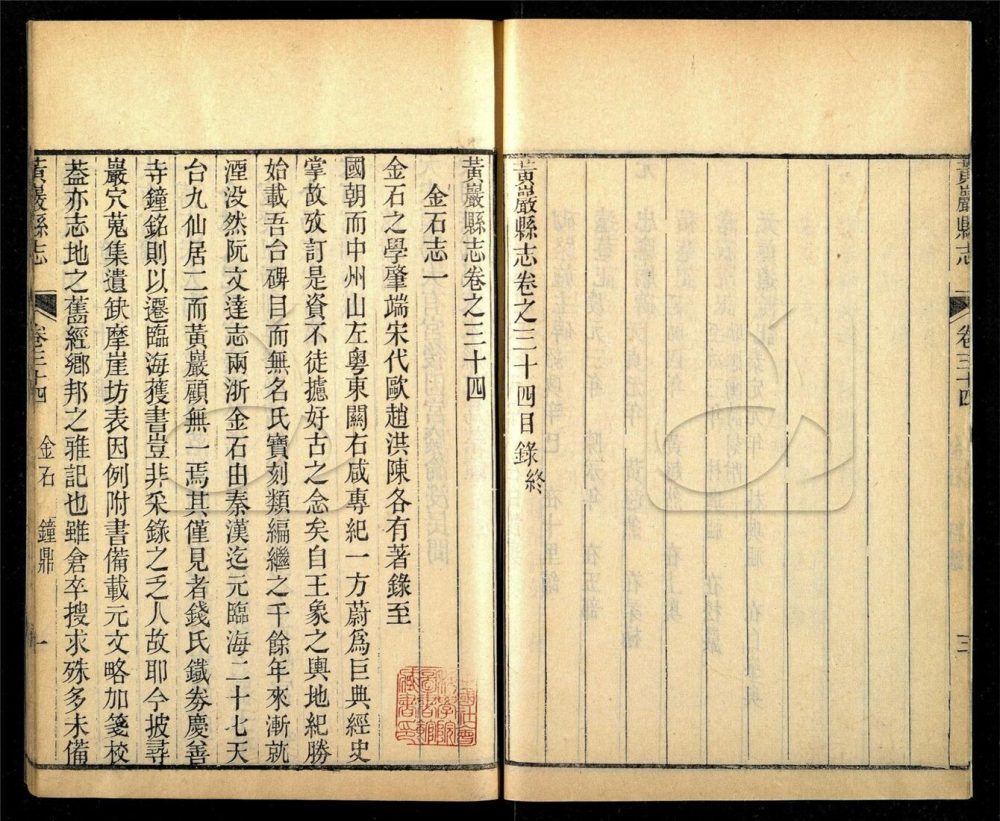 黃巖縣志
卷三十四
三
黃巖縣志卷之三十四目錄終
黃巖縣志卷之三十四
金石志一
金石之學肇端宋代歐趙洪陳各有著錄至
國朝而中州山左粵東關右咸專紀一方蔚爲巨典經史
掌故攷訂是資不徒攄好古之念矣自王象之輿地紀勝
始載吾台碑目而無名氏寶刻類編繼之千餘年來漸就
湮没然阮文達志兩浙金石由秦漢迄元臨海二十七天
台九仙居二而黃巖顧無一焉其僅見者錢氏鐵劵慶善
寺鐘銘則以遷臨海獲書豈非采錄之乏人故耶今披尋
巖穴蒐集遺缺摩崖坊表因例附書備載元文略加箋校
葢亦志地之舊經鄉邦之雅記也雖倉卒搜求殊多未備
黃巖縣志
卷三十四
金石
鐘鼎
一